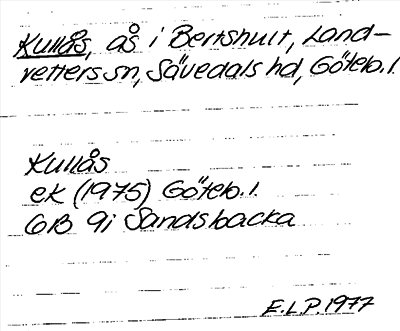 Kullås, ås i Bertshult, Land-
vetters sn, Sävedals hd, Göteb. l.
Kullås
ek (1975) Göteb. l.
6B 9i Sandsbacka
E.L.P. 1977